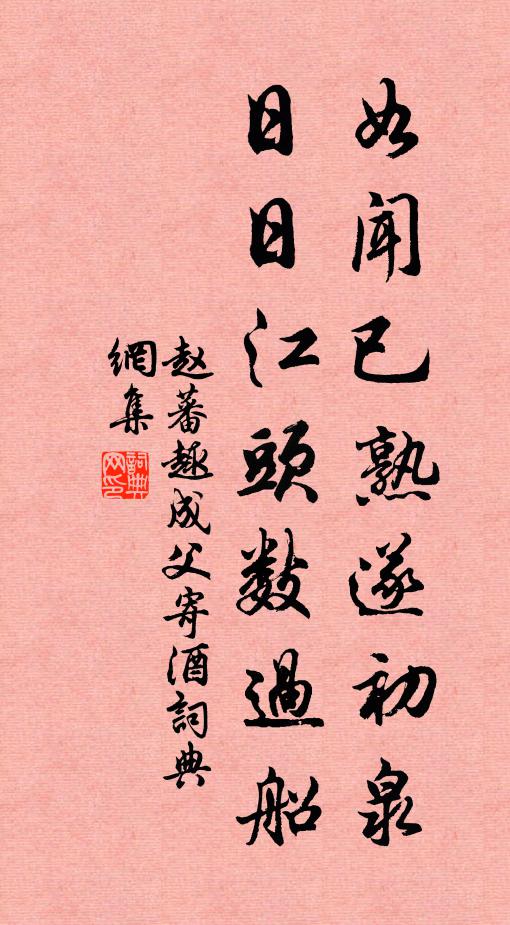 如闻已熟遂初泉
日日江頭數過船
赵蕃趣成父寄酒詞典
網集
詞典網印